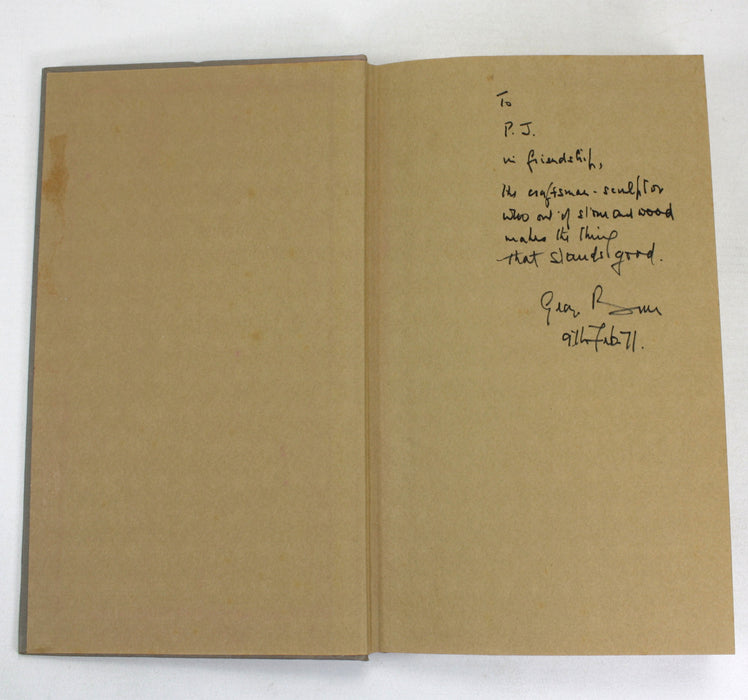 To
P.J.
in friendship,
the craftsman-sculptor
who out of stone and wood
makes the thing
that stands good.
George
9th Feb 71.